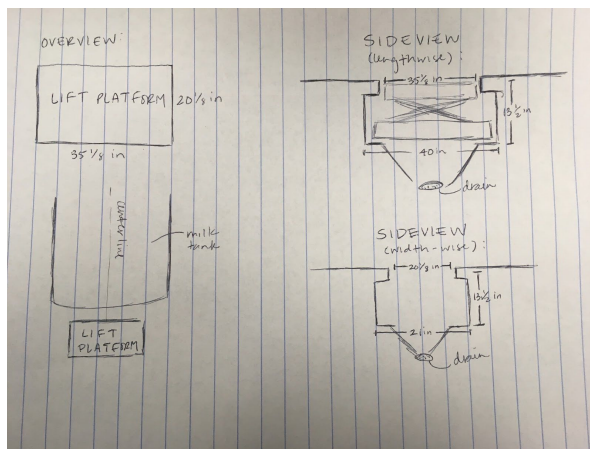 OVERVIEW:
LIFT PLATFORM
20 1/8 in
35 1/8 in
centerline
milk
tank
LIFT
PLATFORM
SIDEVIEW
(lengthwise):
35 1/8 in
13 1/2 in
40 in
drain
SIDEVIEW
(width-wise):
20 1/8 in
13 1/2 in
21 in
drain